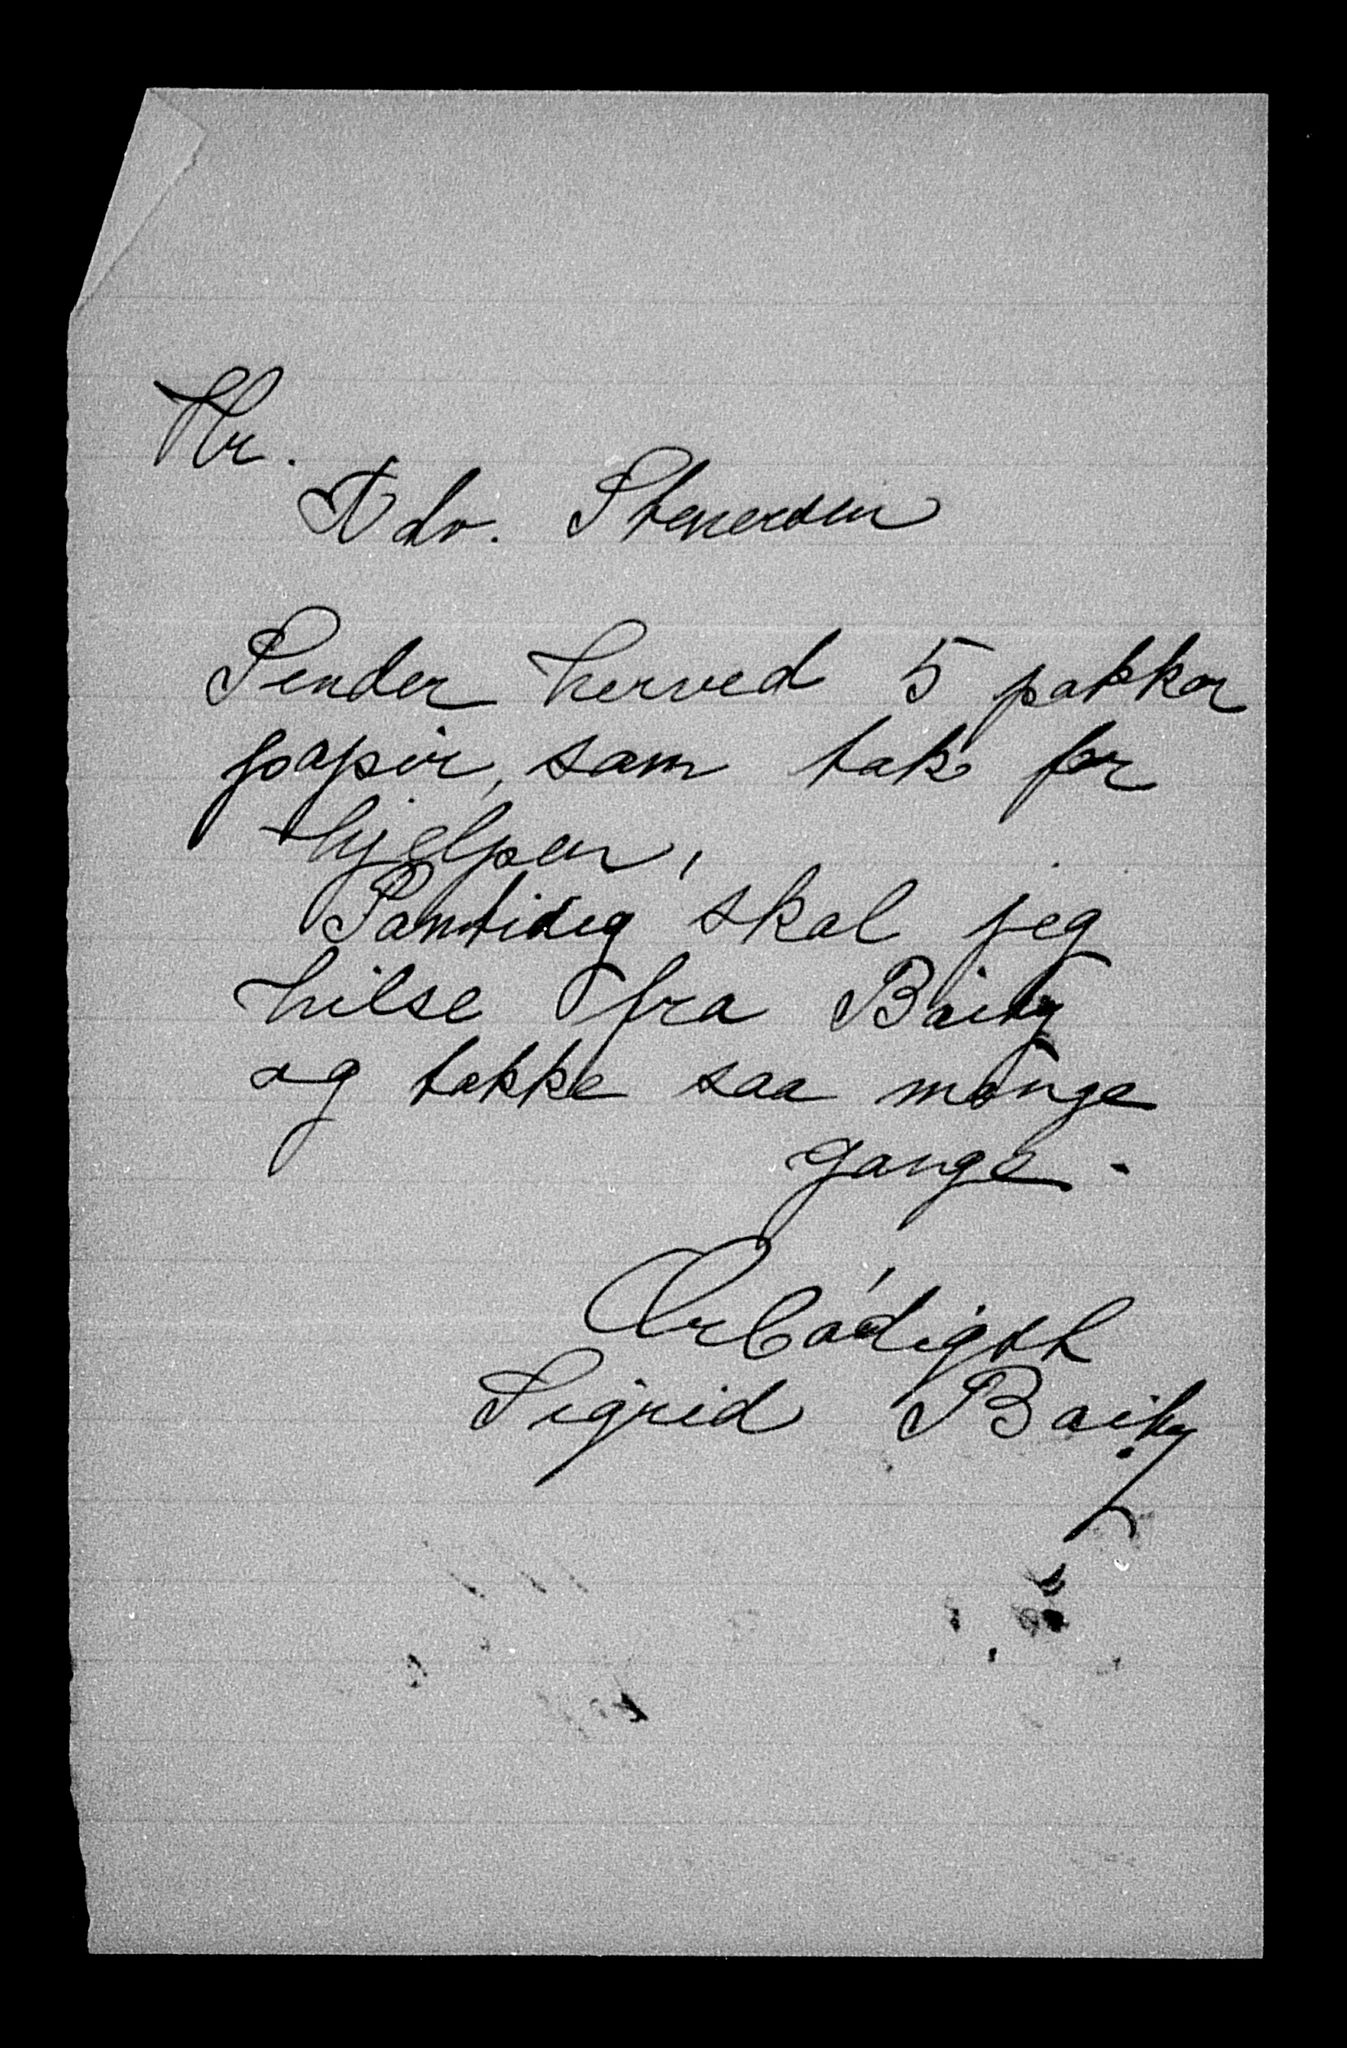 Hr.
Adv. Stenersen
Sender herved 5 pakker
papir, som tak for
hjelpen,
Samtidig skal jeg
hilse fra Baiky
og takke saa mange
gange.
Ærbødigst
Sigrid Baiky